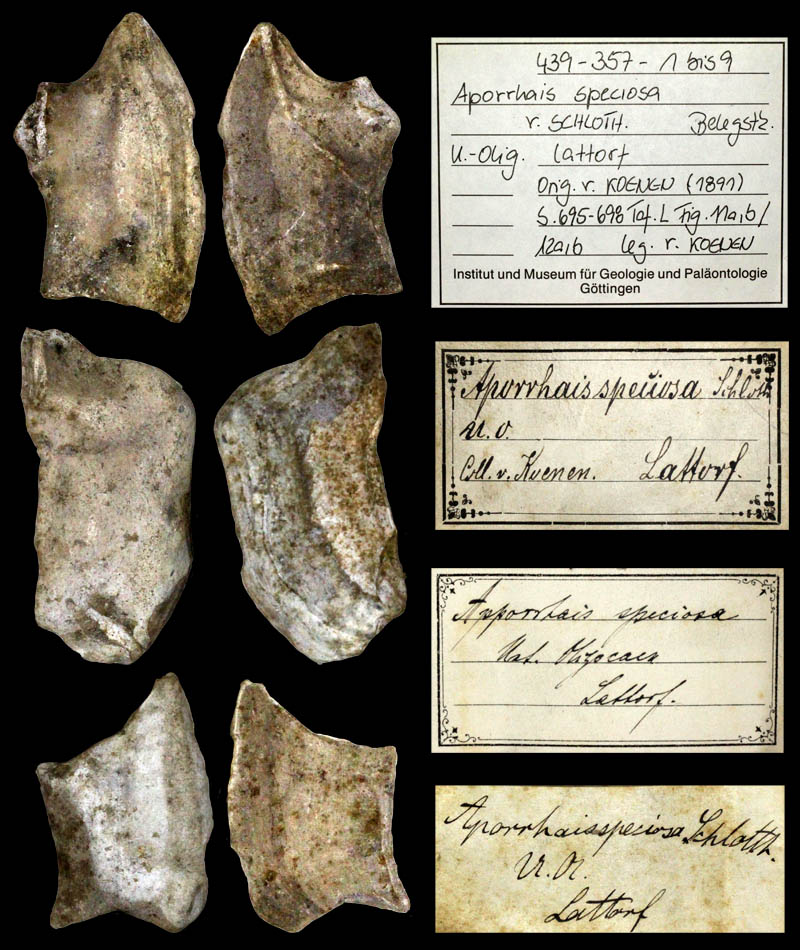 439-357- 1 bis 9
Aporrhais speciosa
v. SCHLOTH. Belegstz.
U.-Olig. Lattorf
Orig. v. KOENEN (1891)
S. 695-698 Taf. L Fig. 11a,b/
12a,b leg. v. KOENEN
Institut und Museum für Geologie und Paläontologie
Göttingen
Aporrhais speciosa Schloth
U. O.
Coll. v. Koenen. Lattorf.
Aporrhais speciosa
Unt. Oligocaen
Lattorf.
Aporrhais speciosa Schloth.
U. Ol.
Lattorf